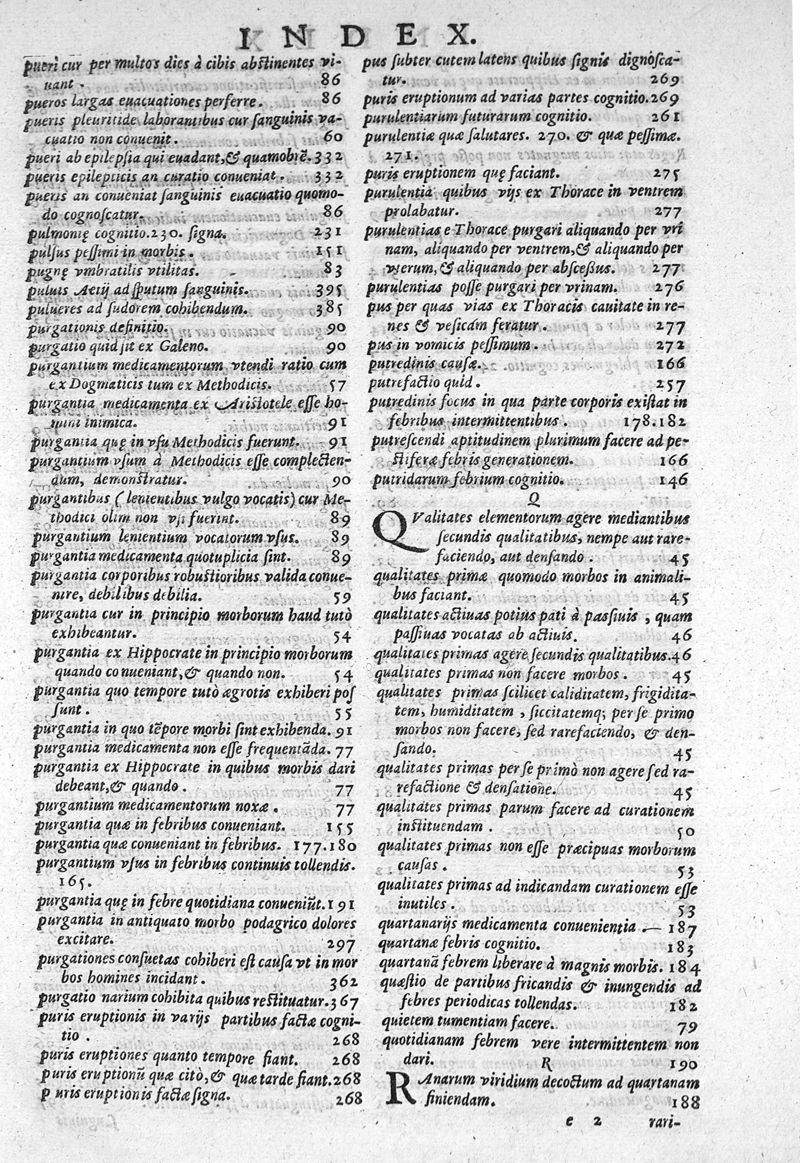 INDEX.
pueri cur per multos dies à cibis abstinentes vi-
uant . 86
pueros largas euacuationes perferre. 86
pueris pleuritide laborantibus cur sanguinis va-
cuatio non conuenit. 60
pueri ab epilepsia qui euadant, & quamobrē. 332
pueris epilepticis an curatio conueniat . 332
pueris an conueniat sanguinis euacuatio quomo-
do cognoscatur. 86
pulmonię cognitio. 230. signa. 231
pulsus pessimi in morbis . 151
pugnę vmbratilis vtilitas. 83
puluis Aetij ad sputum sanguinis. 395
pulueres ad sudorem cohibendum. 385
purgationis definitio. 90
purgatio quid sit ex Galeno. 90
purgantium medicamentorum vtendi ratio cum
ex Dogmaticis tum ex Methodicis. 57
purgantia medicamenta ex Aristotele esse ho-
mini inimica. 91
purgantia quę in vsu Methodicis fuerunt. 91
purgantium vsum à Methodicis esse complecten-
dum, demonstratur. 90
purgantibus ( lenientibus vulgo vocatis) cur Me-
thodici olim non vsi fuerint. 89
purgantium lenientium vocatorum vsus. 89
purgantia medicamenta quotuplicia sint. 89
purgantia corporibus robustioribus valida conue-
nire, debilibus debilia. 59
purgantia cur in principio morborum haud tutò
exhibeantur. 54
purgantia ex Hippocrate in principio morborum
quando conueniant, & quando non. 54
purgantia quo tempore tutò ægrotis exhiberi pos
sunt . 55
purgantia in quo tēpore morbi sint exhibenda. 91
purgantia medicamenta non esse frequentāda. 77
purgantia ex Hippocrate in quibus morbis dari
debeant, & quando . 77
purgantium medicamentorum noxæ . 77
purgantia quæ in febribus conueniant. 155
purgantia quæ conueniant in febribus. 177.180
purgantium vsus in febribus continuis tollendis.
165.
purgantia quę in febre quotidiana conueniūt. 191
purgantia in antiquato morbo podagrico dolores
excitare. 297
purgationes consuetas cohiberi est causa vt in mor
bos homines incidant . 362
purgatio narium cohibita quibus restituatur. 367
puris eruptionis in varijs partibus factæ cogni-
tio . 268
puris eruptiones quanto tempore fiant. 268
puris eruptionū quæ citò, & quæ tarde fiant. 268
puris eruptionis factæ signa. 268
pus subter cutem latens quibus signis dignosca-
tur. 269
puris eruptionum ad varias partes cognitio. 269
purulentiarum futurarum cognitio. 261
purulentiæ quæ salutares. 270. & quæ pessimæ.
271.
puris eruptionem quę faciant. 275
purulentia quibus vijs ex Thorace in ventrem
prolabatur. 277
purulentias e Thorace purgari aliquando per vri
nam, aliquando per ventrem, & aliquando per
vterum, & aliquando per abscessus. 277
purulentias posse purgari per vrinam. 276
pus per quas vias ex Thoracis cauitate in re-
nes & vesicam feratur . 277
pus in vomicis pessimum . 272
putredinis causæ. 166
putrefactio quid . 257
putredinis focus in qua parte corporis existat in
febribus intermittentibus . 178.182
putrescendi aptitudinem plurimum facere ad pe-
stiferæ febris generationem. 166
putridarum febrium cognitio. 146
Q
QValitates elementorum agere mediantibus
secundis qualitatibus, nempe aut rare-
faciendo, aut densando . 45
qualitates primæ quomodo morbos in animali-
bus faciant. 45
qualitates actiuas potius pati à passiuis , quam
passiuas vocatas ab actiuis. 46
qualitates primas agere secundis qualitatibus. 46
qualitates primas non facere morbos . 45
qualitates primas scilicet caliditatem, frigidita-
tem, humiditatem , siccitatemq; per se primo
morbos non facere, sed rarefaciendo, & den-
sando. 45
qualitates primas per se primò non agere sed ra-
refactione & densatione. 45
qualitates primas parum facere ad curationem
instituendam . 50
qualitates primas non esse præcipuas morborum
causas . 53
qualitates primas ad indicandam curationem esse
inutiles . 53
quartanarijs medicamenta conuenientia . 187
quartanæ febris cognitio. 183
quartanā febrem liberare à magnis morbis. 184
quæstio de partibus fricandis & inungendis ad
febres periodicas tollendas. 182
quietem tumentiam facere. 79
quotidianam febrem vere intermittentem non
dari. 190
R
RAnarum viridium decoctum ad quartanam
finiendam. 188
e 2 rari-